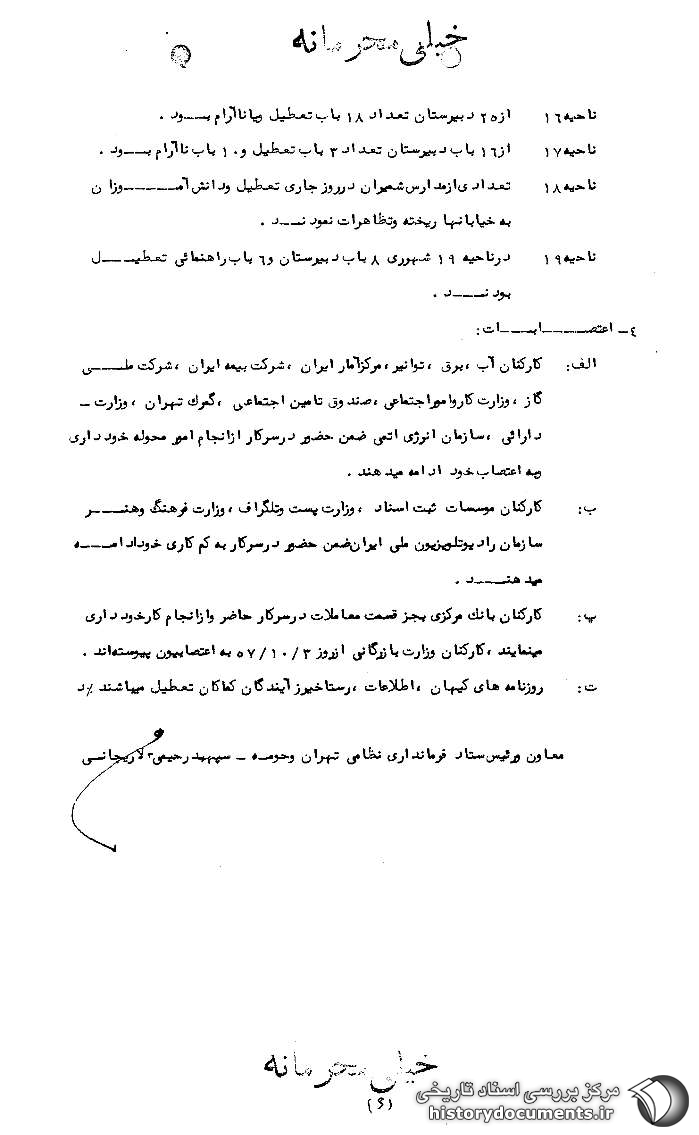 خیلی محرمانه
ناحیه ۱۶ از ۲۵ دبیرستان تعداد ۱۸ باب تعطیل ویا ناآرام بـــود.
ناحیه ۱۷ از ۱۶ باب دبیرستان تعداد ۳ باب تعطیل و ۱۰ باب ناآرام بـــود.
ناحیه ۱۸ تعدادی ازمدارس شمیران درروز جاری تعطیل ودانش آمـــوزان
به خیابانها ریخته وتظاهرات نمودنـــد.
ناحیه ۱۹ درناحیه ۱۹ شهرری ۸ باب دبیرستان و ۶ باب راهنمائی تعطیـــل
بودنـــد.
٤ـ اعتصـــابـــات:
الف: کارکنان آب، برق، توانیر، مرکزآمار ایران، شرکت بیمه ایران، شرکت ملـــی
گاز، وزارت کاروامور اجتماعی، صندوق تامین اجتماعی، گمرک تهران، وزارت ـ
دارائی، سازمان انرژی اتمی ضمن حضور درسرکار ازانجام امور محوله خودداری
وبه اعتصاب خود ادامه میدهند.
ب: کارکنان موسسات ثبت اسناد، وزارت پست وتلگراف، وزارت فرهنگ وهنـــر
سازمان رادیوتلویزیون ملی ایران ضمن حضور درسرکار به کم کاری خودادامـــه
میدهنـــد.
پ: کارکنان بانک مرکزی بجز قسمت معاملات درسرکار حاضر وازانجام کارخودداری
مینمایند، کارکنان وزارت بازرگانی ازروز ۵۷/۱۰/۳ به اعتصابیون پیوسته‌اند.
ت: روزنامه های کیهان، اطلاعات، رستاخیزز آیندگان کماکان تعطیل میباشند /د
معاون ورئیس ستاد فرمانداری نظامی تهران وحومه ـ سپهبد رحیمی لاریجانـــی
خیلی محرمانه
(٤)
مرکز بررسی اسناد تاریخی
historydocuments.ir